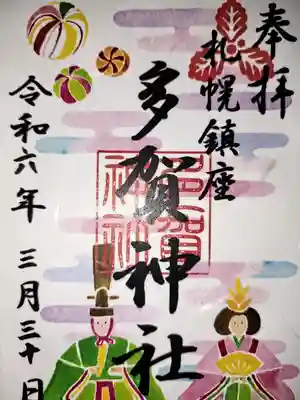 奉拝
札幌鎮座
多賀神社
令和六年 三月三十日
多賀神社